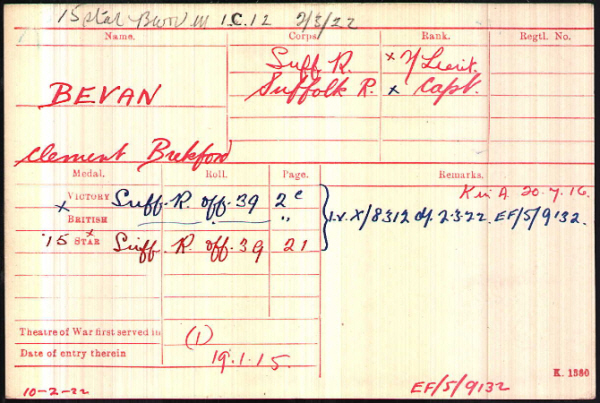 15 Star BWV M I.C.12 2/3/22
Name. Corps. Rank. Regtl. No.
BEVAN Suff R. x 2/Lieut.
Suffolk R. x Capt.
Clement Brekford
Medal. Roll. Page. Remarks.
Kin A 20.7.16.
VICTORY Suff. R. off. 39 2c
x I.V.X/8312 of 2.3.22. EF/5/9132.
BRITISH " "
x
'15 STAR Suff. R. off. 39 21
Theatre of War first served in (1)
Date of entry therein 19.1.15.
K. 1380
10-2-22 EF/5/9132